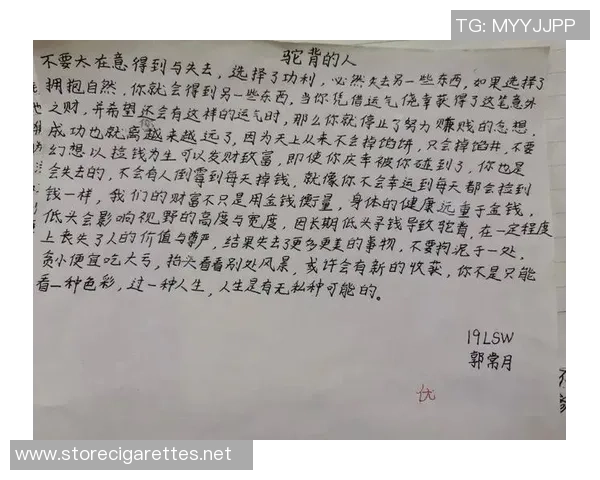 TG: MYYJJPP
驼背的人
不要太在意得到与失去，选择了功利，必然失去另一些东西，如果选择了
拥抱自然，你就会得到另一些东西，当你凭借运气侥幸获得了这笔意外
之财，并希望还会有这样的运气时，那么你就停止了努力赚钱的念想，
成功也就离你越来越远了，因为天上从来不会掉馅饼，只会掉陷井，不要
幻想以捡钱为生可以发财致富，即使你庆幸被你碰到了，你也是
会失去的，不会有人倒霉到每天掉钱，就像你不会幸运到每天都会捡到
钱一样，我们的财富不只是用金钱衡量，身体的健康远重于金钱，
低头会影响视野的高度与宽度，因长期低头寻钱导致驼背，在一定程度
上丧失了人的价值与尊严，结果失去了更多更美的事物，不要拘泥于一处，
贪小便宜吃大亏，抬头看看别处风景，或许会有新的收获，你不是只能
看一种色彩，过一种人生，人生是有无私种可能的。
19LSW
郭常月
优
www.storecigarettes.net